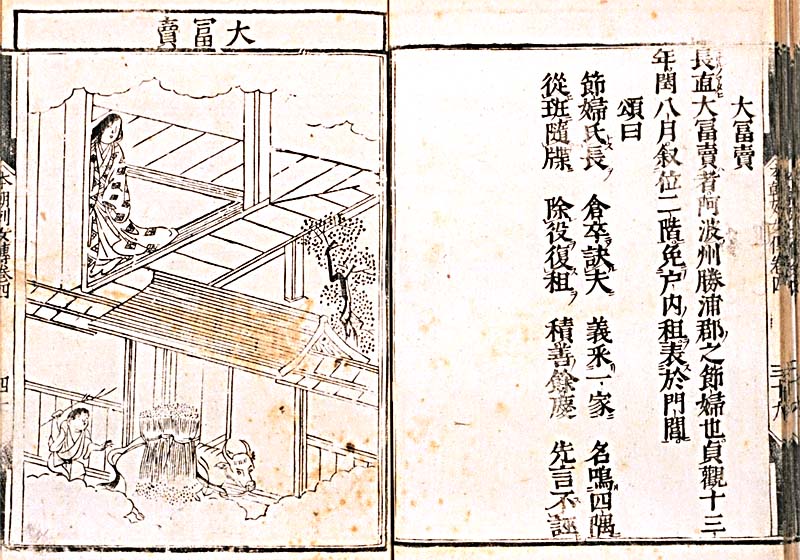 大冨賣
長直大冨賣者阿波州勝浦郡之節婦也貞觀十三
年閏八月叙位二階免户内租表於門閭
頌曰
節婦氏長 倉卒訣夫 義釆一家 名鳴四隅
從班隨牒 除役復租 積善餘慶 先言不誣
大冨賣
本朝列女傳卷四